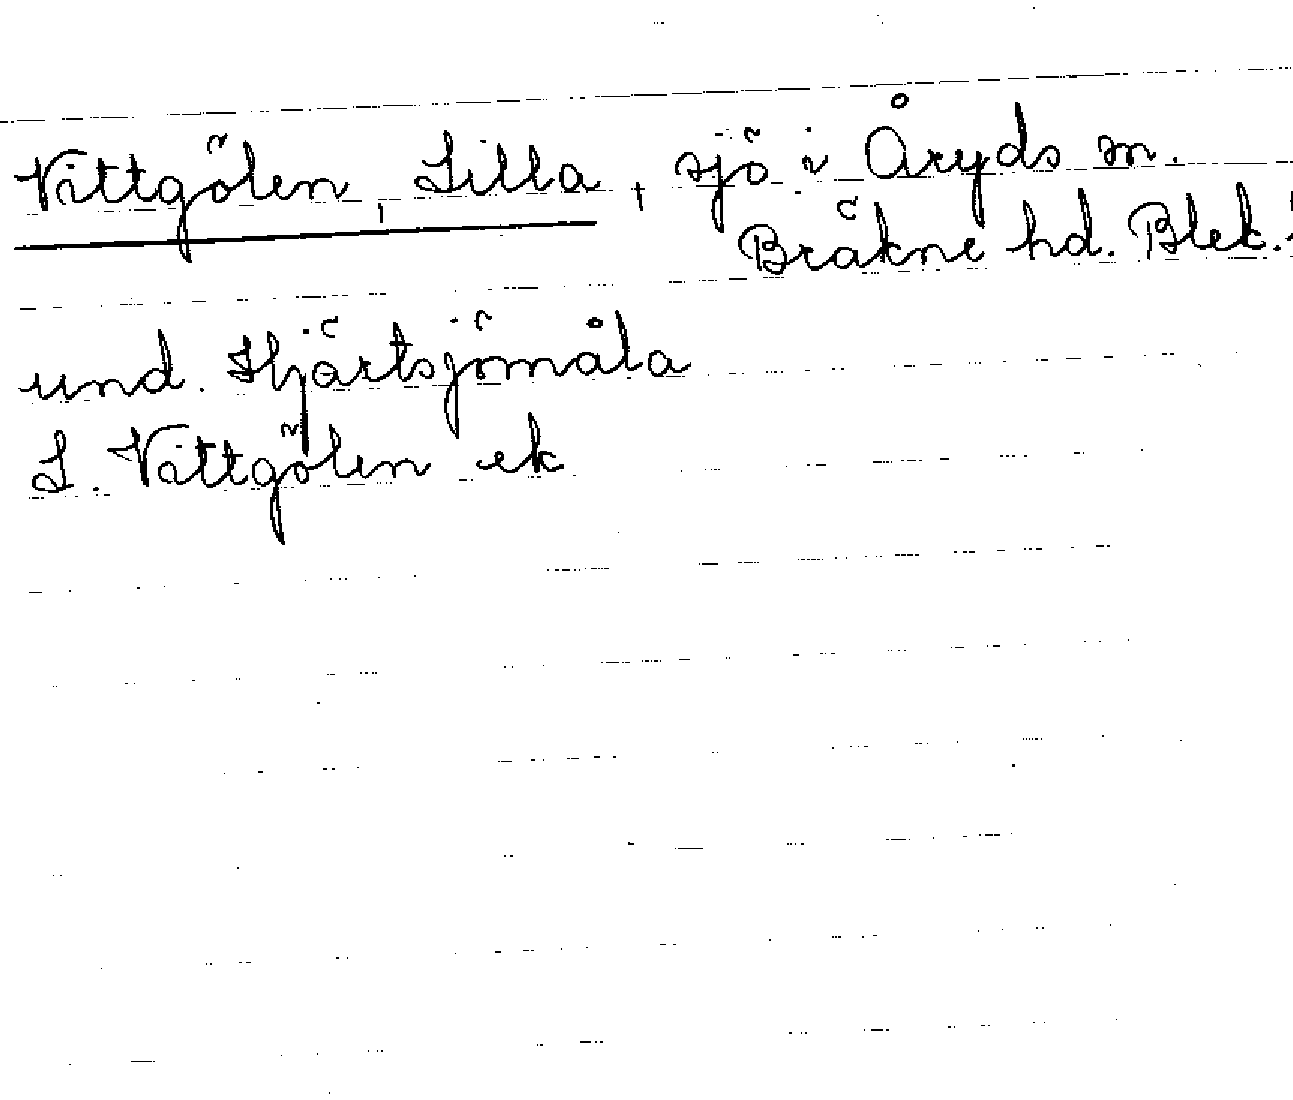 Vittgölen, Lilla, sjö i Åryds sn.
Bräkne hd. Blek.
und. Hjärtsjömåla
L. Vittgölen ek